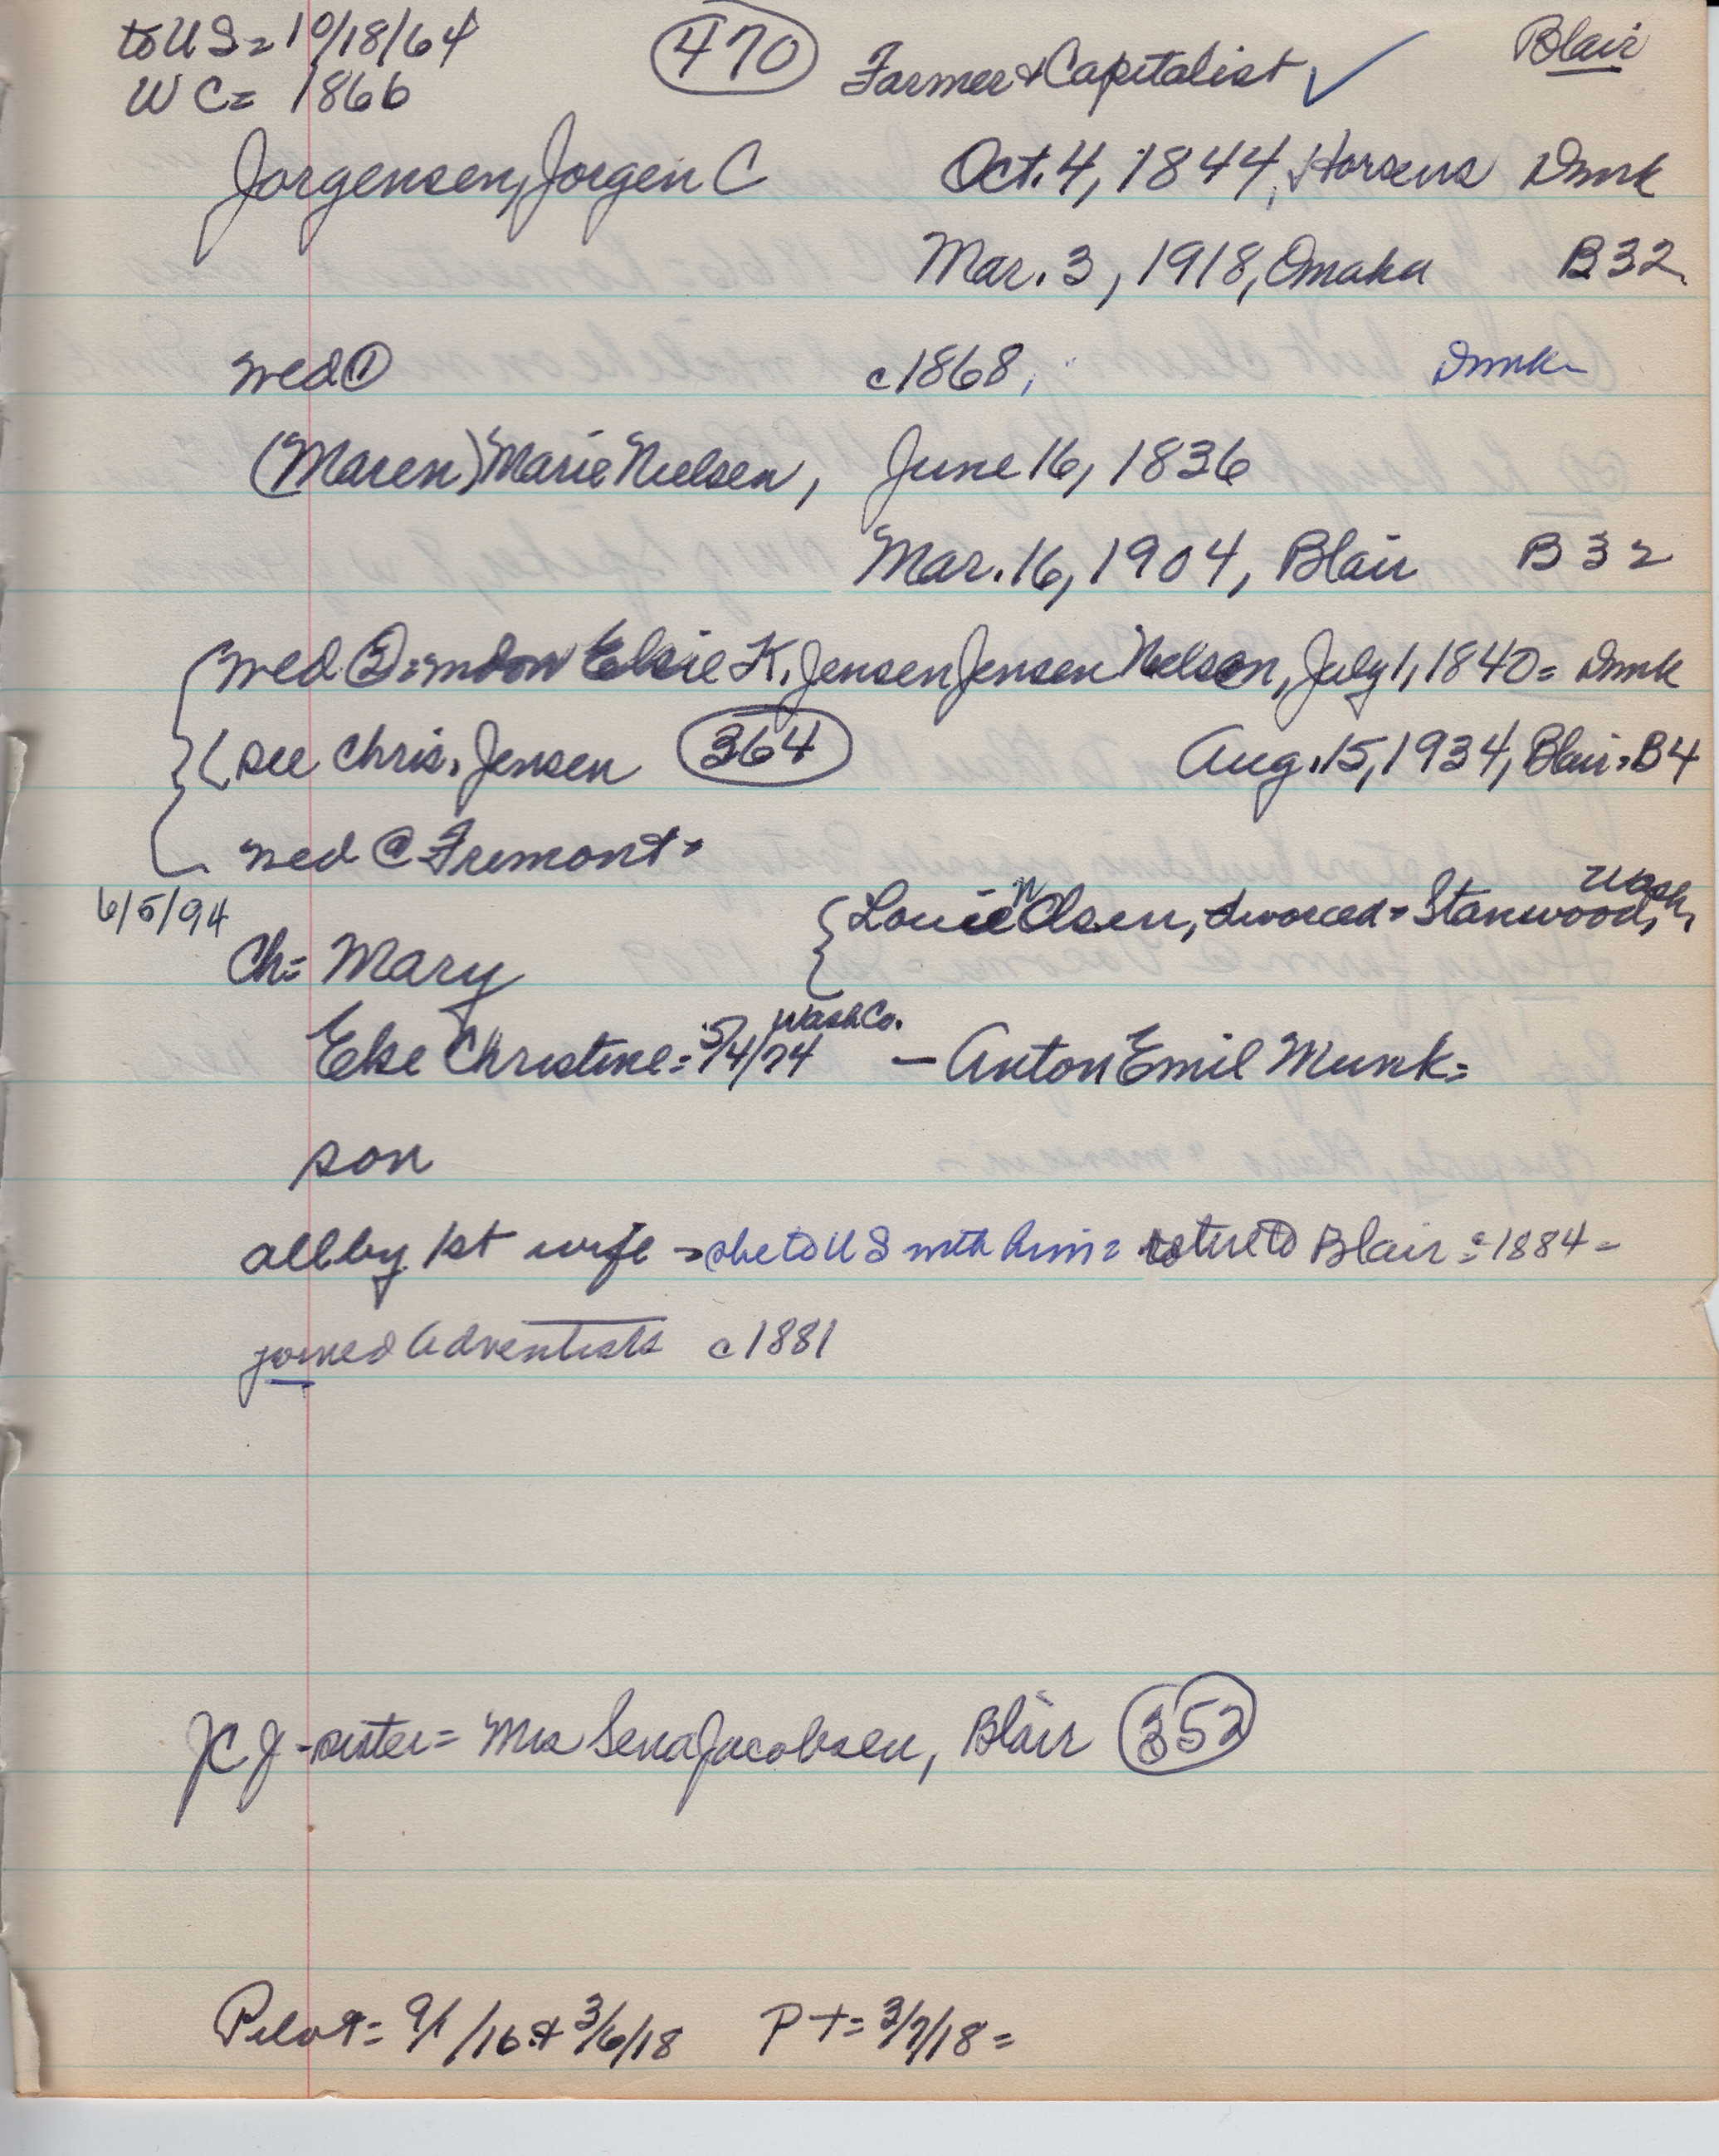 to US = 10/18/64
WC = 1866
470
Farmer & Capitalist ✓
Blair
Jorgensen, Jorgen C Oct. 4, 1844, Horsens Dmrk
Mar. 3, 1918, Omaha B32
wed ① c1868, Dmrk
(Maren) Marie Nielsen, June 16, 1836
Mar. 16, 1904, Blair B32
wed ② = Elsie K. Jensen Jensen Nelson, July 1, 1840 = Dmrk
(see Chris. Jensen 364 Aug. 15, 1934, Blair = B4
wed @ Fremont =
6/5/94
Louie N Olsen, divorced = Stanwood, Wash.
Ch = Mary
Else Christine = 5/4/74 Wash Co. — Anton Emil Munk =
son
all by 1st wife → she to US with him = Blair = 1884 =
joined Adventists c1881
JCJ - sister = Mrs Sena Jacobsen, Blair 352
Pilot = 9/ /16 & 3/6/18 PT = 3/7/18 =